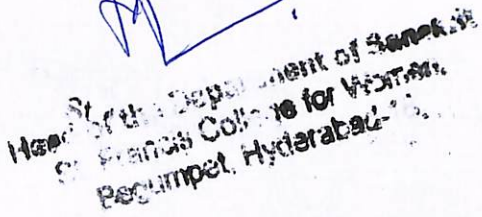 Head of the Department of Sanskrit
St. Francis College for Women,
Begumpet, Hyderabad-